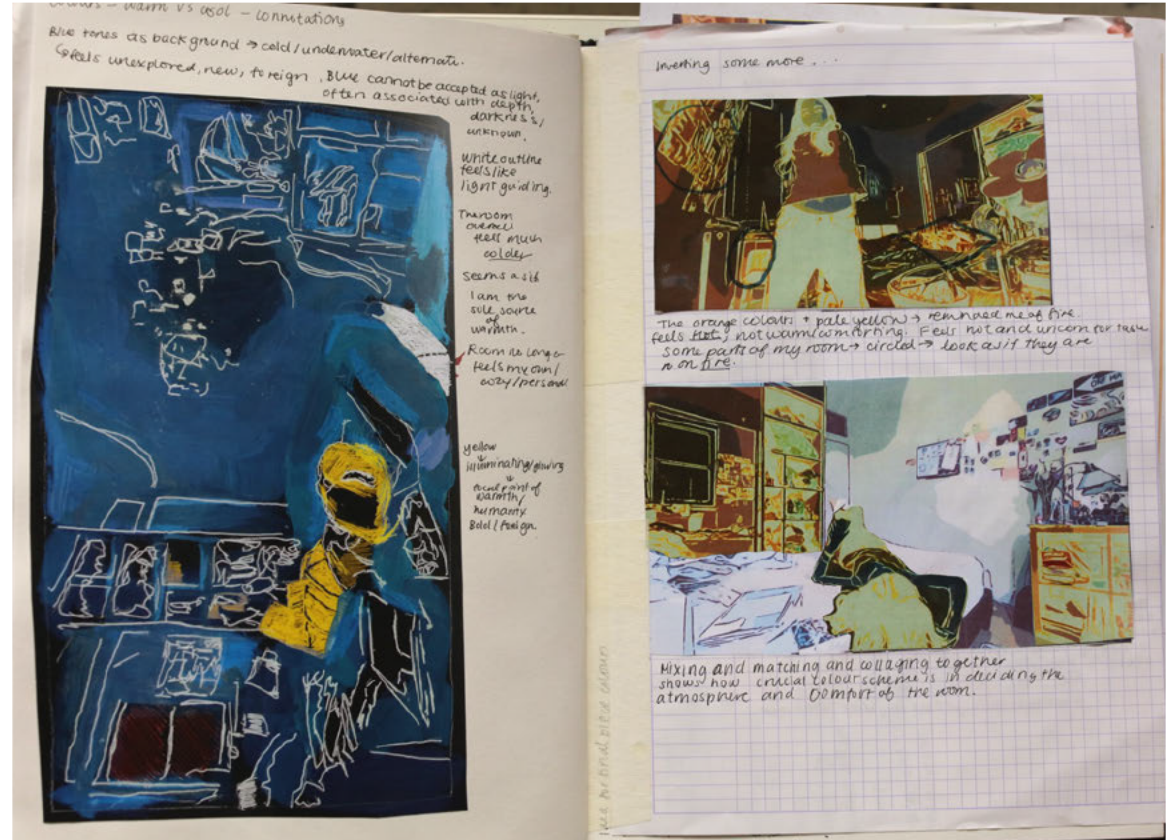 colours - warm vs cool - connotations
Blue tones as background → cold/underwater/alternate.
↳ feels unexplored, new, foreign. Blue cannot be accepted as light,
often associated with depth,
darkness,
unknown.
White outline
feels like
light guiding.
The room
overall
feels much
colder
Seems as if
I am the
sole source
of
warmth.
Room no longer
feels my own/
cozy/personal
yellow
↓
illuminating/glowing
↓
focal point of
warmth/
humanity
Bold/foreign.
Inverting some more...
The orange colours + pale yellow → reminded me of fire.
feels hot, not warm/comforting. Feels hot and uncomfortable
Some parts of my room → circled → look as if they are
on fire.
Mixing and matching and collaging together
shows how crucial colour scheme is in deciding the
atmosphere and comfort of the room.
idea for final piece colours